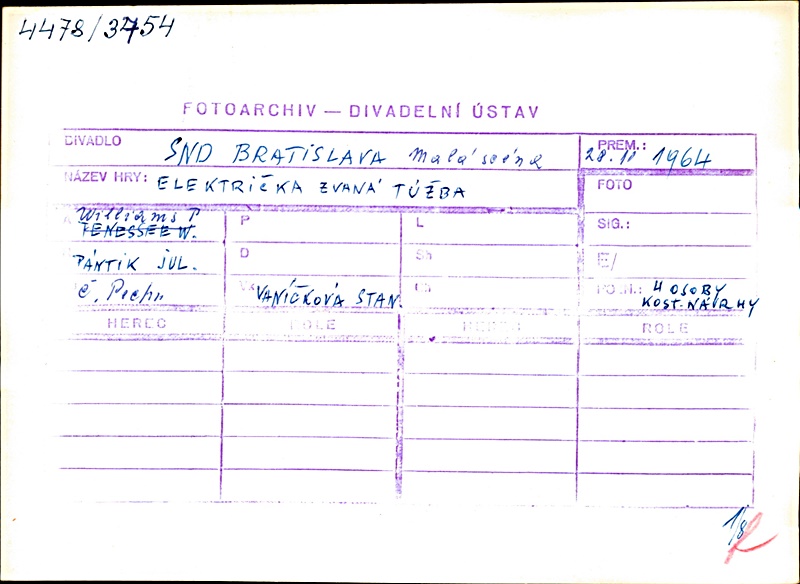 4478/3754
FOTOARCHIV — DIVADELNÍ ÚSTAV
DIVADLO SND BRATISLAVA Malá scéna PREM.: 28.11 1964
NÁZEV HRY: ELEKTRIČKA ZVANÁ TÚŽBA FOTO
Williams T
TENESSEE W. P L SIG.:
PÁNTIK JUL. D Sh E/
Č. Pechr VANÍČKOVÁ STAN. POZN.: 4 OSOBY
KOST. NÁVRHY
HEREC ROLE HEREC ROLE
1/8